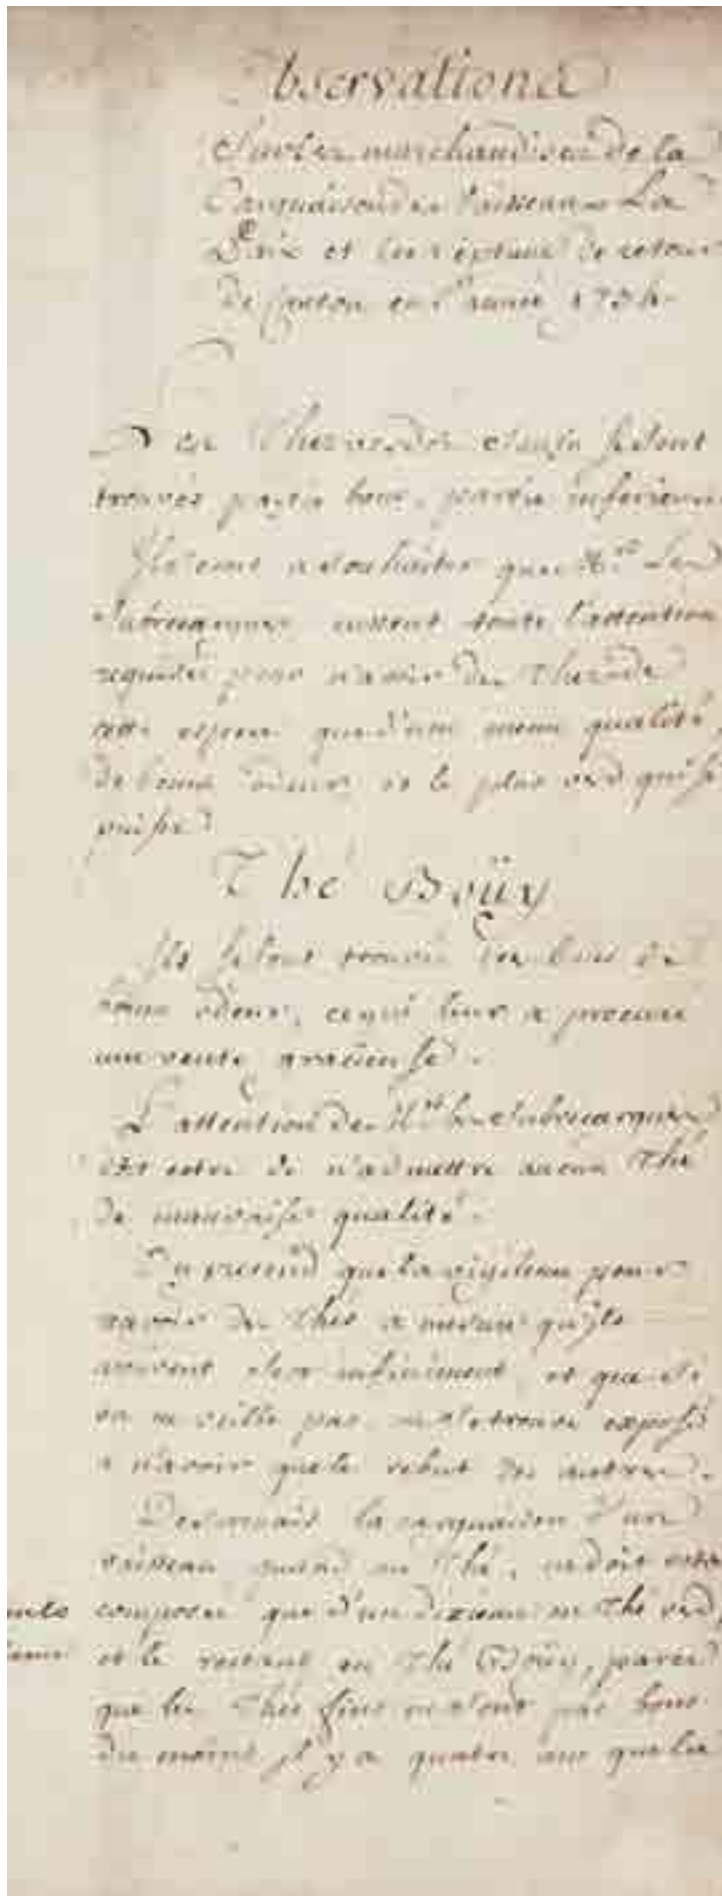 Observations
Sur les marchandises de la
Carguaison des Vaisseaux La
Paix et de retour
de Canton en l'année 1734
Les Thés verds se sont
trouvés partie bons, partie inferieurs
Il seroit a souhaiter que Mrs Les
Subrecargues eussent toute l'attention
requise pour n'avoir des Thés de
cette espece que d'une meme qualité,
de bonne odeur, et le plus verd qu'il se
puisse
Thé Boüy
Ils se sont trouvés tres bons de
bonne odeur, ce qui leur a procuré
une vente gratieuse.
L'attention de Mrs les Subrecargues
doit estre de n'admettre aucun Thé
de mauvaise qualité.
On pretend que la vigilence pour
avoir des Thés a mesure qu'ils
arrivent sert infiniment, et que si
on ne veille pas, on se trouve exposé
a n'avoir que le rebut des autres.
Desormais la carguaison d'un
vaisseau quand au Thé, ne doit estre
composée que d'un dixieme en Thé verd,
et le restant en Thé Boüy, parce
que les Thés fins ne sont pas bons
du moins il y a quatre ans que les